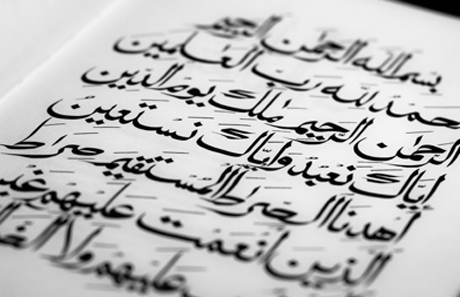 بسم الله الرحمن الرحيم
حمد لله رب العلمين
الرحمن الرحيم ملك يوم الدين
إياك نعبد وإياك نستعين
اهدنا الصراط المستقيم صراط
الذين انعمت عليهم غير
عليهم ولا